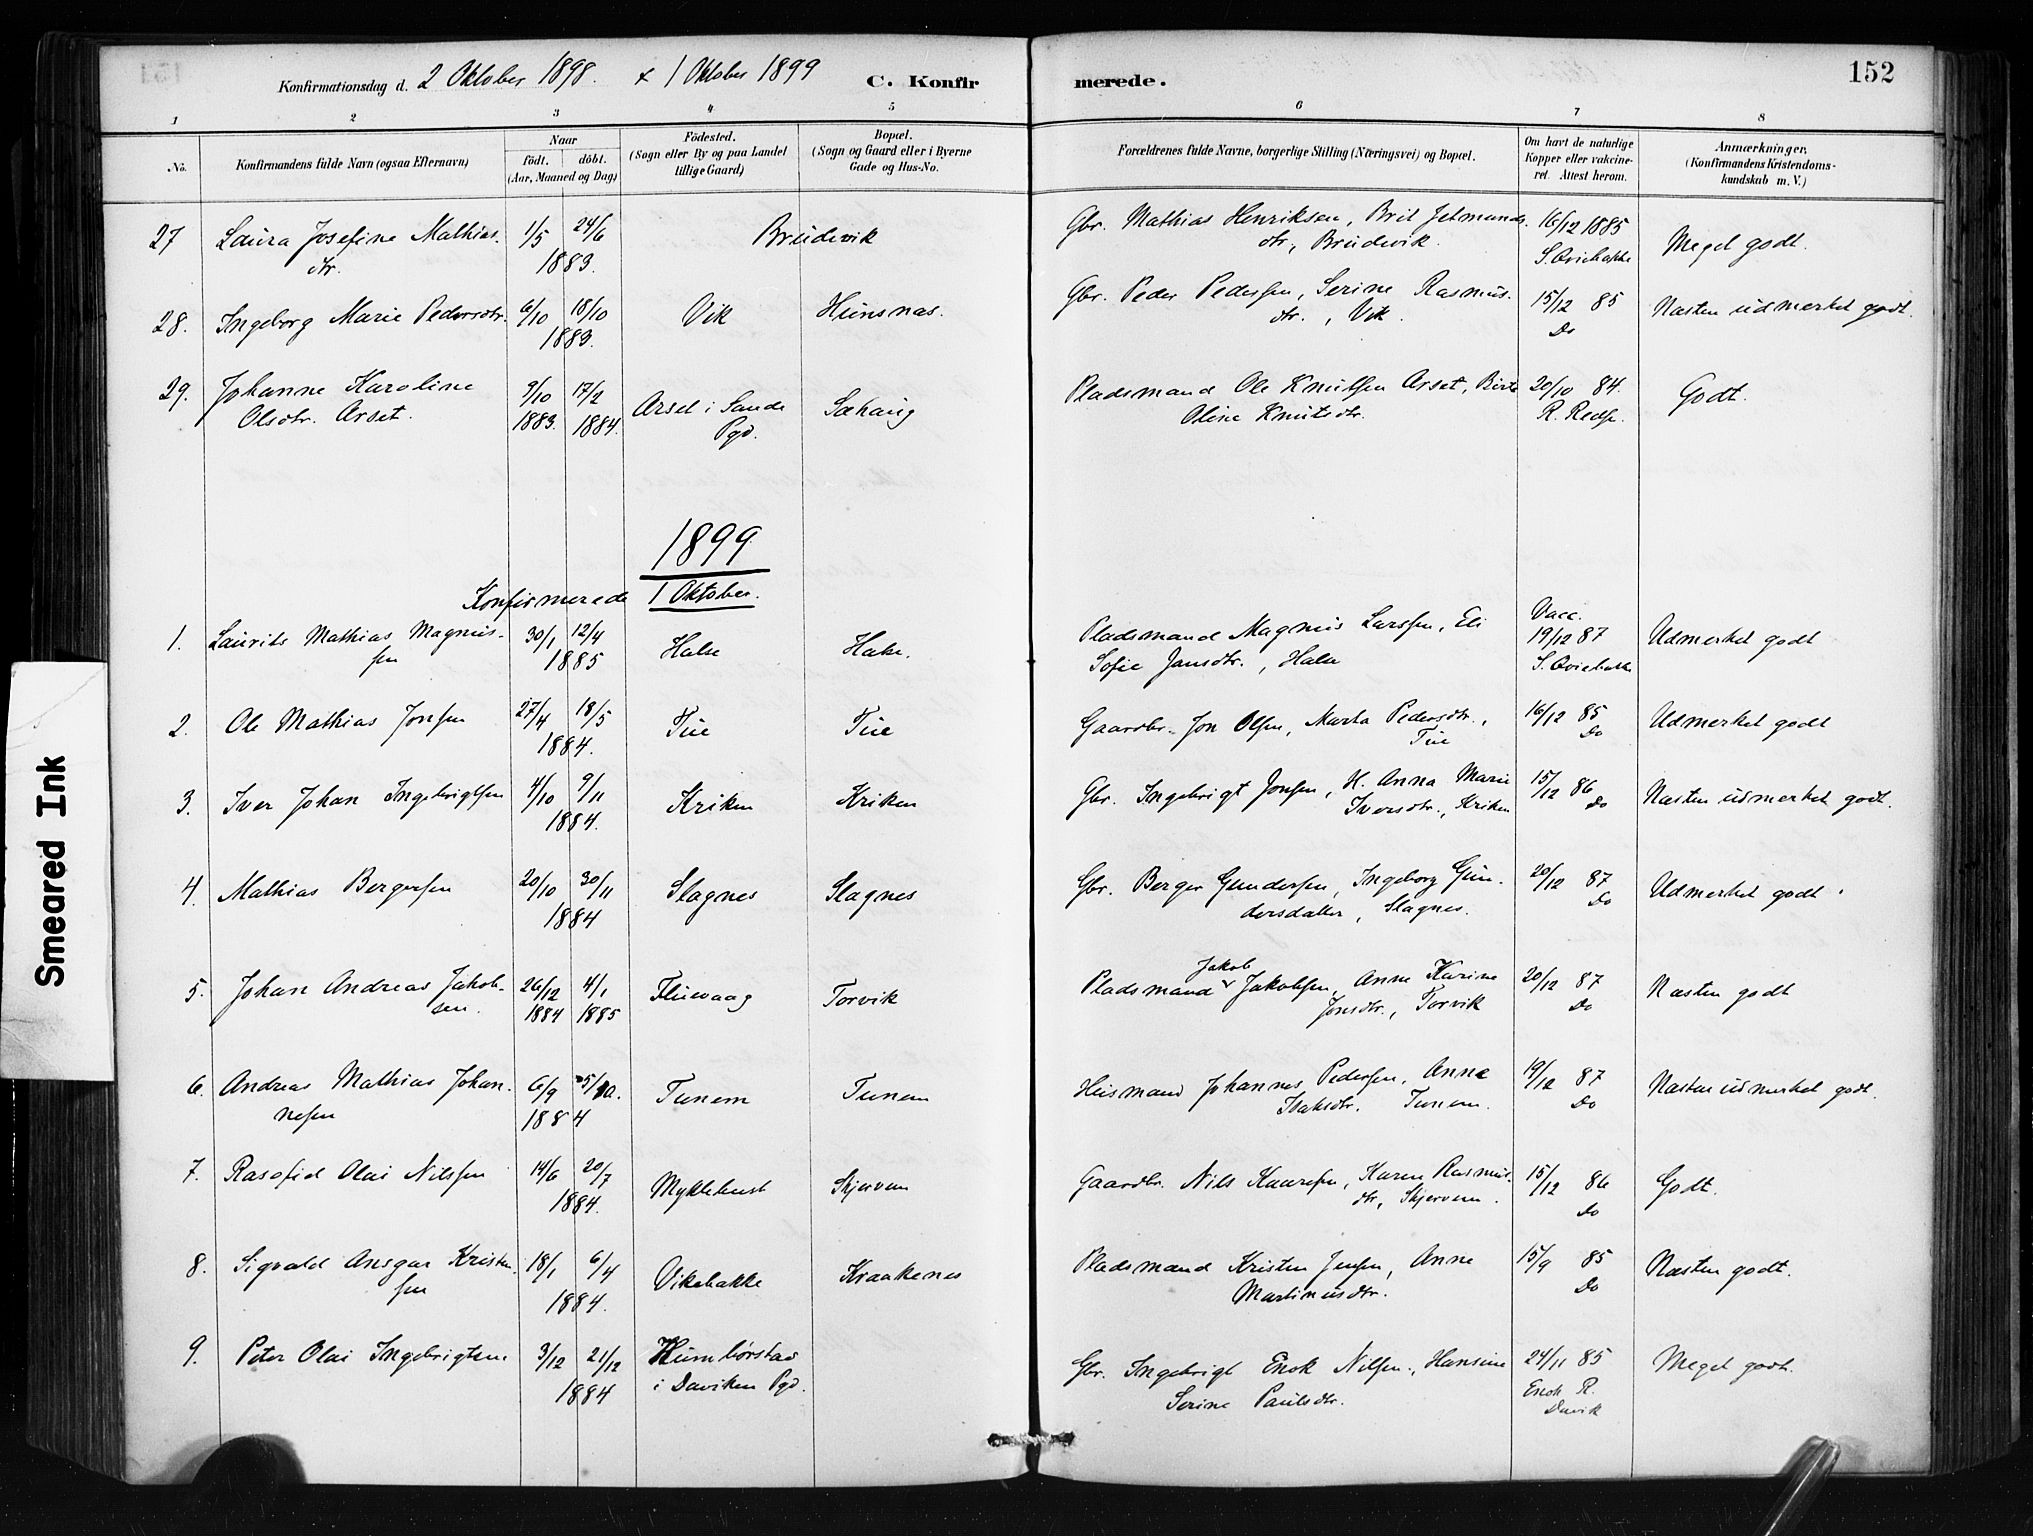 Konfirmationsdag d. 2 Oktober 1898. & 1 Oktober 1899 C. Konfir merede. 152
1 2 3 4 5 6 7 8
No. Konfirmandens fulde Navn (ogsaa Efternavn)
Naar
födt. döbt.
(Aar, Maaned og Dag)
Födested.
(Sogn eller By og paa Landet
tillige Gaard)
Bopæl.
(Sogn og Gaard eller i Byerne
Gade og Hus-No.
Forældrenes fulde Navne, borgerlige Stilling (Næringsvei) og Bopæl.
Om havt de naturlige
Kopper eller vakcine-
ret. Attest herom.
Anmærkninger.
(Konfirmandens Kristendoms-
kundskab m. V.)
27 Laura Josefine Mathias. 1/5 24/6 Brudevik Gbr. Mathias Henriksen, Brit Jetmunds 16/12 1885 Meget godt.
dtr. 1883. dtr., Brudevik. S. Qviebakke
28. Ingeborg Marie Pedersdtr. 6/10 18/10 Vik Hunsnas. Gbr. Peder Pedersen, Serine Rasmus. 15/12 85 Næsten udmerket godt.
1883. dtr., Vik. Do
29. Johanne Karoline 9/10 17/2 Arset i Sande Sæhaug Pladsmand Ole Knutsen Arset, Birte 20/10 84. Godt.
Olsdtr. Arset. 1883. 1884. Pgd. Oline Knutsdtr. R.
1899
Konfirmerede 1 Oktober.
1. Laurits Mathias Magnus- 30/1 12/4 Halse Halse. Pladsmand Magnus Larssen, Eli Vacc. 19/12 87 Udmerket godt
sen 1885 Sofie Jansdtr., Halse S. Qviebakke
2. Ole Mathias Jonsen 27/4 18/5 Tue Tue Gaardbr. Jon Olsen, Marta Pedersdtr., 16/12 85 Udmerket godt
1884. Tue Do
3. Iver Johan Ingebrigtsen 4/10 9/11 Kriken Kriken Gbr. Ingebrigt Jonsen, H. Anna Marie 15/12 86 Næsten udmerket godt.
1884. Iversdtr., Kriken Do
4. Mathias Bergersen 20/10 30/11 Slagnes Slagnes Gbr. Berger Gundersen, Ingeborg Gun- 20/12 87 Udmerket godt
1884 dersdatter, Slagnes. Do
5. Johan Andreas Jakob- 26/12 4/1 Fluevaag Torvik Pladsmand Jakob Jakobsen, Anne Karine 20/12 87 Næsten godt
sen. 1884 1885 Jonsdtr., Torvik Do
6. Andreas Mathias Johan- 6/9 5/10. Tunem Tunem Husmand Johannes Pedersen, Anne 19/12 87 Næsten udmerket godt.
nesen 1884 Isaksdtr. Tunem. Do
7. Rasafid Olai Nilssen 14/6 20/7 Myklebust Skjervem Gaardbr. Nils Kaaresen, Karen Rasmus- 15/12 86 Godt.
1884. dtr., Skjervem. Do
8. Sigvald Ansgar Kristen- 18/1 6/4 Vikebakke Kraakenes Pladsmand Kristen Jensen, Anne 15/9 85 Næsten godt.
sen 1884. Martinusdtr. Do
9. Peter Olai Ingebrigtsen 3/12 21/12 Humbørstad Gbr. Ingebrigt Enok Nilsen, Hansine 24/11 85 Meget godt.
1884 i Daviken Pgd. Serine Paulsdtr. Enok R.
Davik
Smeared Ink